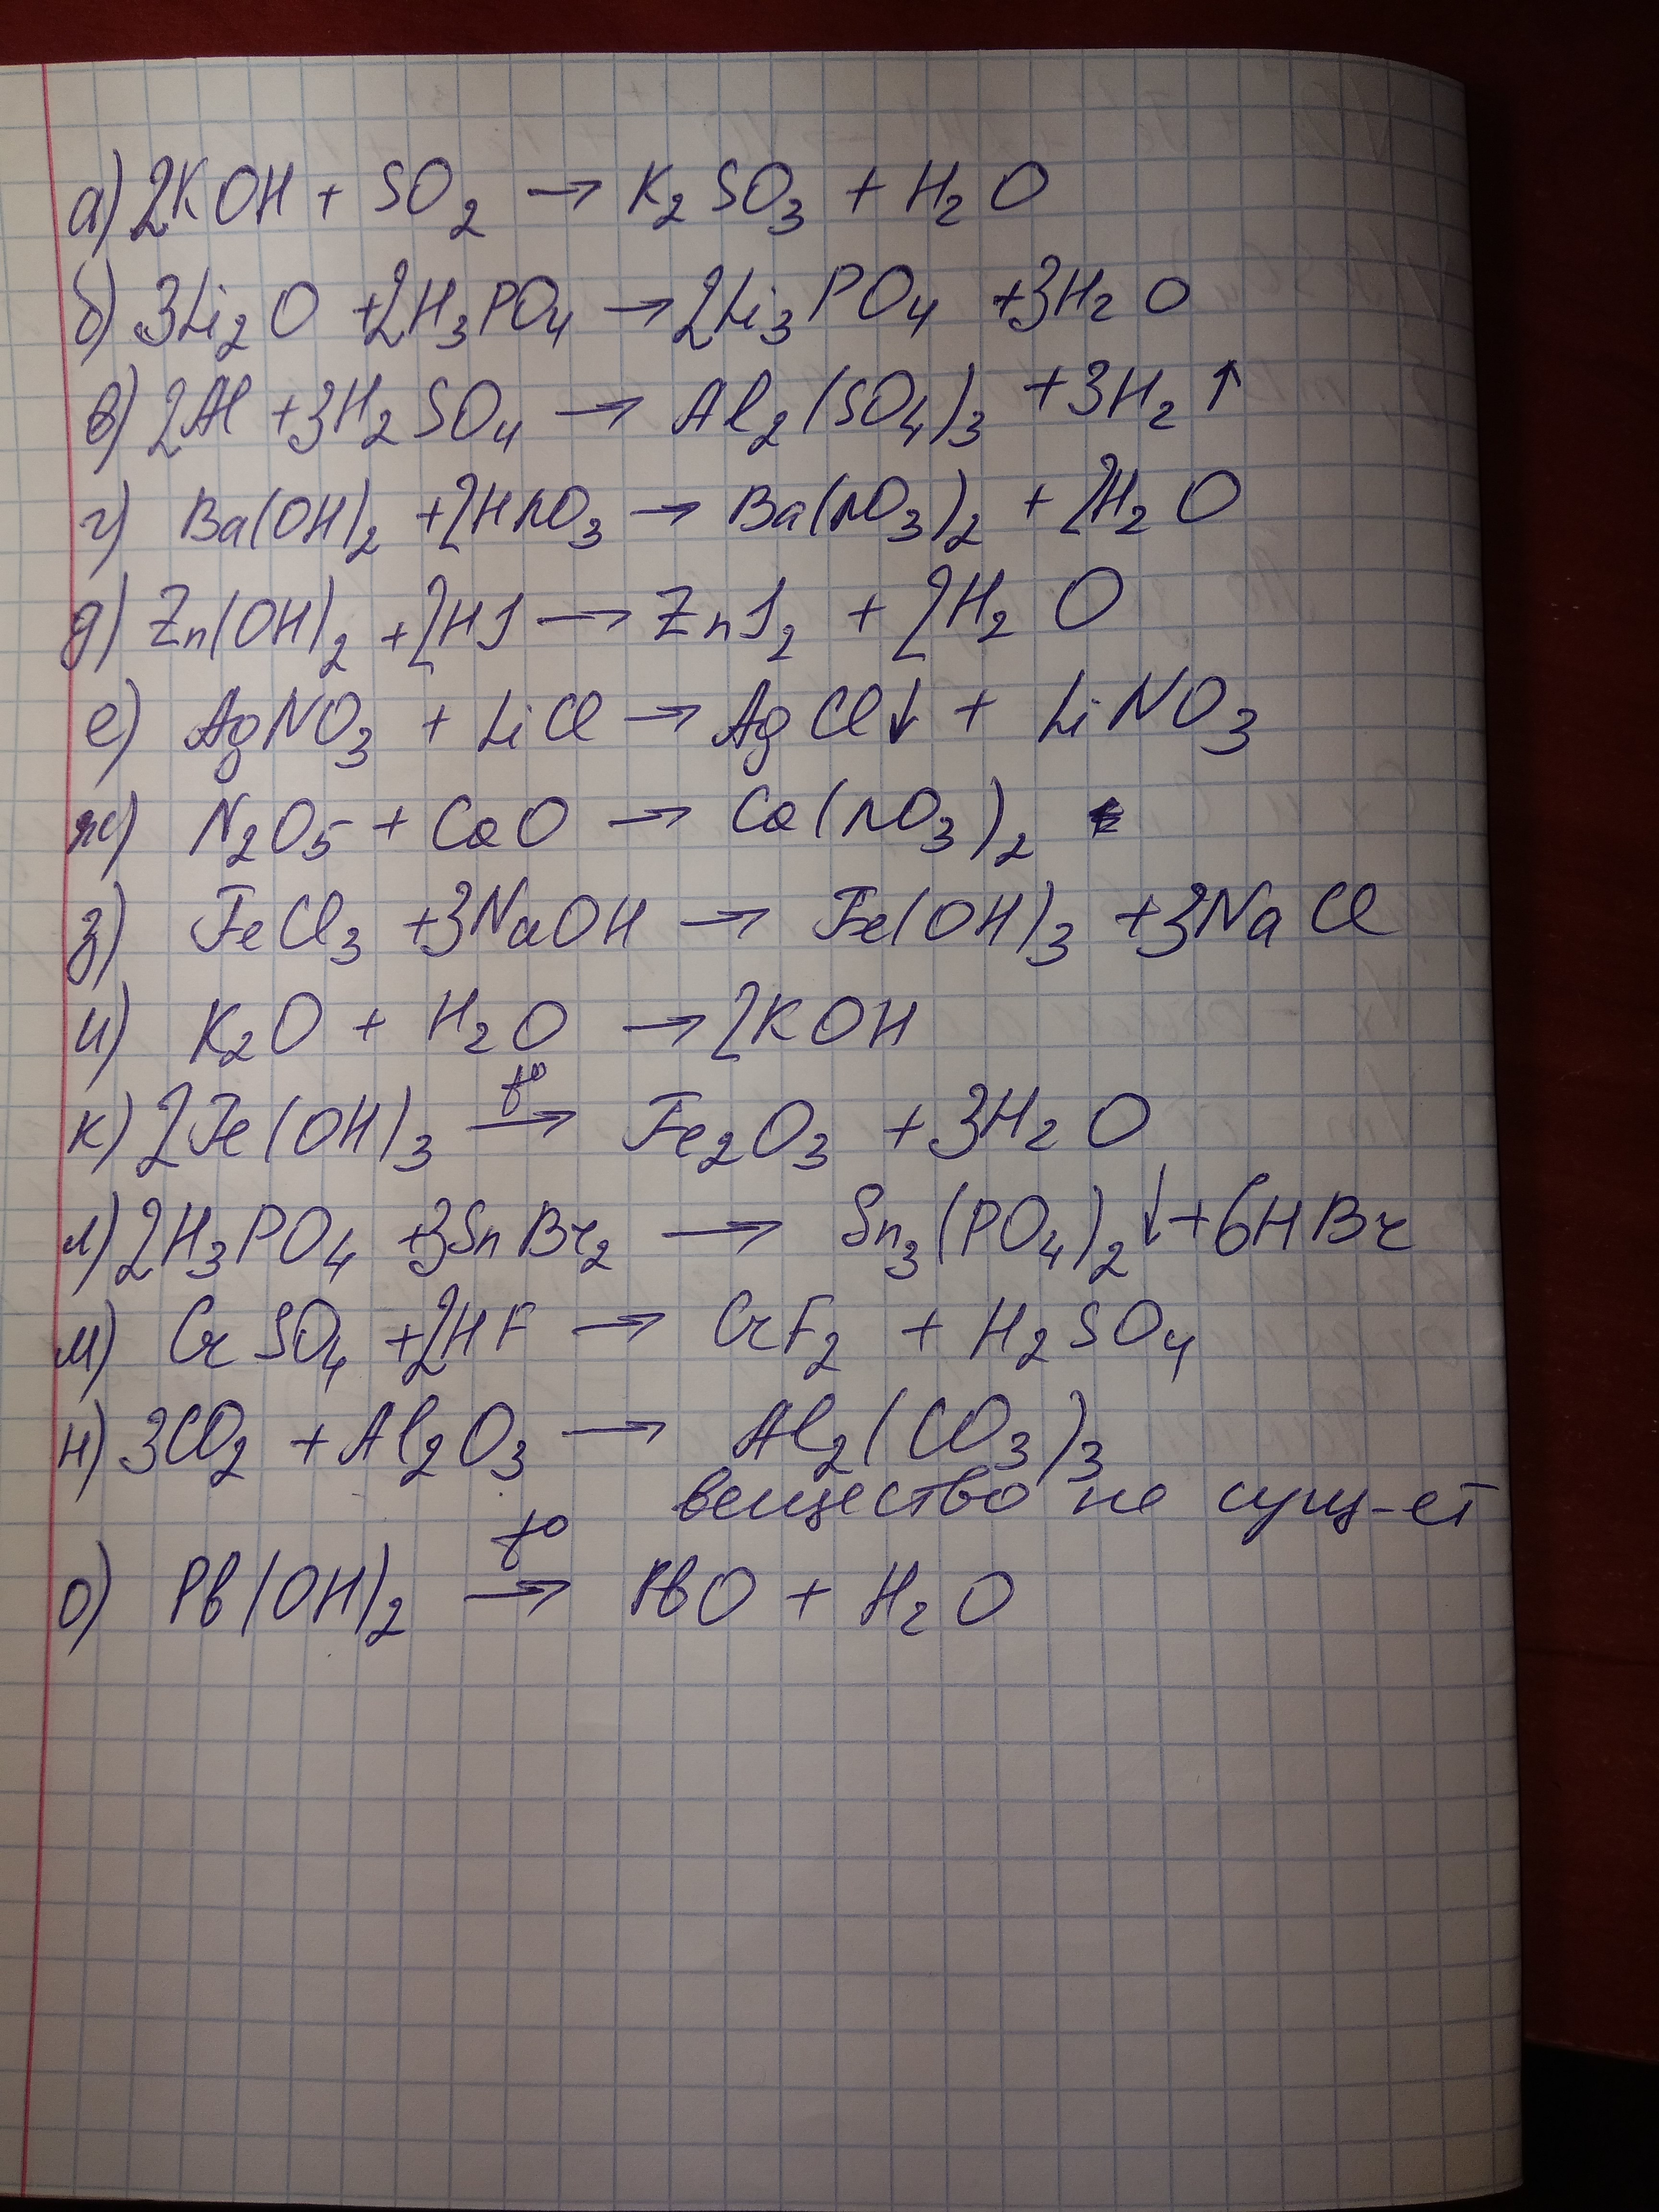 а) 2KOH + SO₂ → K₂SO₃ + H₂O
б) 3Li₂O + 2H₃PO₄ → 2Li₃PO₄ + 3H₂O
в) 2Al + 3H₂SO₄ → Al₂(SO₄)₃ + 3H₂↑
г) Ba(OH)₂ + 2HNO₃ → Ba(NO₃)₂ + 2H₂O
д) Zn(OH)₂ + 2HJ → ZnJ₂ + 2H₂O
е) AgNO₃ + LiCl → AgCl↓ + LiNO₃
ж) N₂O₅ + CaO → Ca(NO₃)₂
з) FeCl₃ + 3NaOH → Fe(OH)₃ + 3NaCl
и) K₂O + H₂O → 2KOH
t°
к) 2Fe(OH)₃ → Fe₂O₃ + 3H₂O
л) 2H₃PO₄ + 3SnBr₂ → Sn₃(PO₄)₂↓ + 6HBr
м) CrSO₄ + 2HF → CrF₂ + H₂SO₄
н) 3CO₂ + Al₂O₃ → Al₂(CO₃)₃
вещество не сущ-ет
t°
о) Pb(OH)₂ → PbO + H₂O